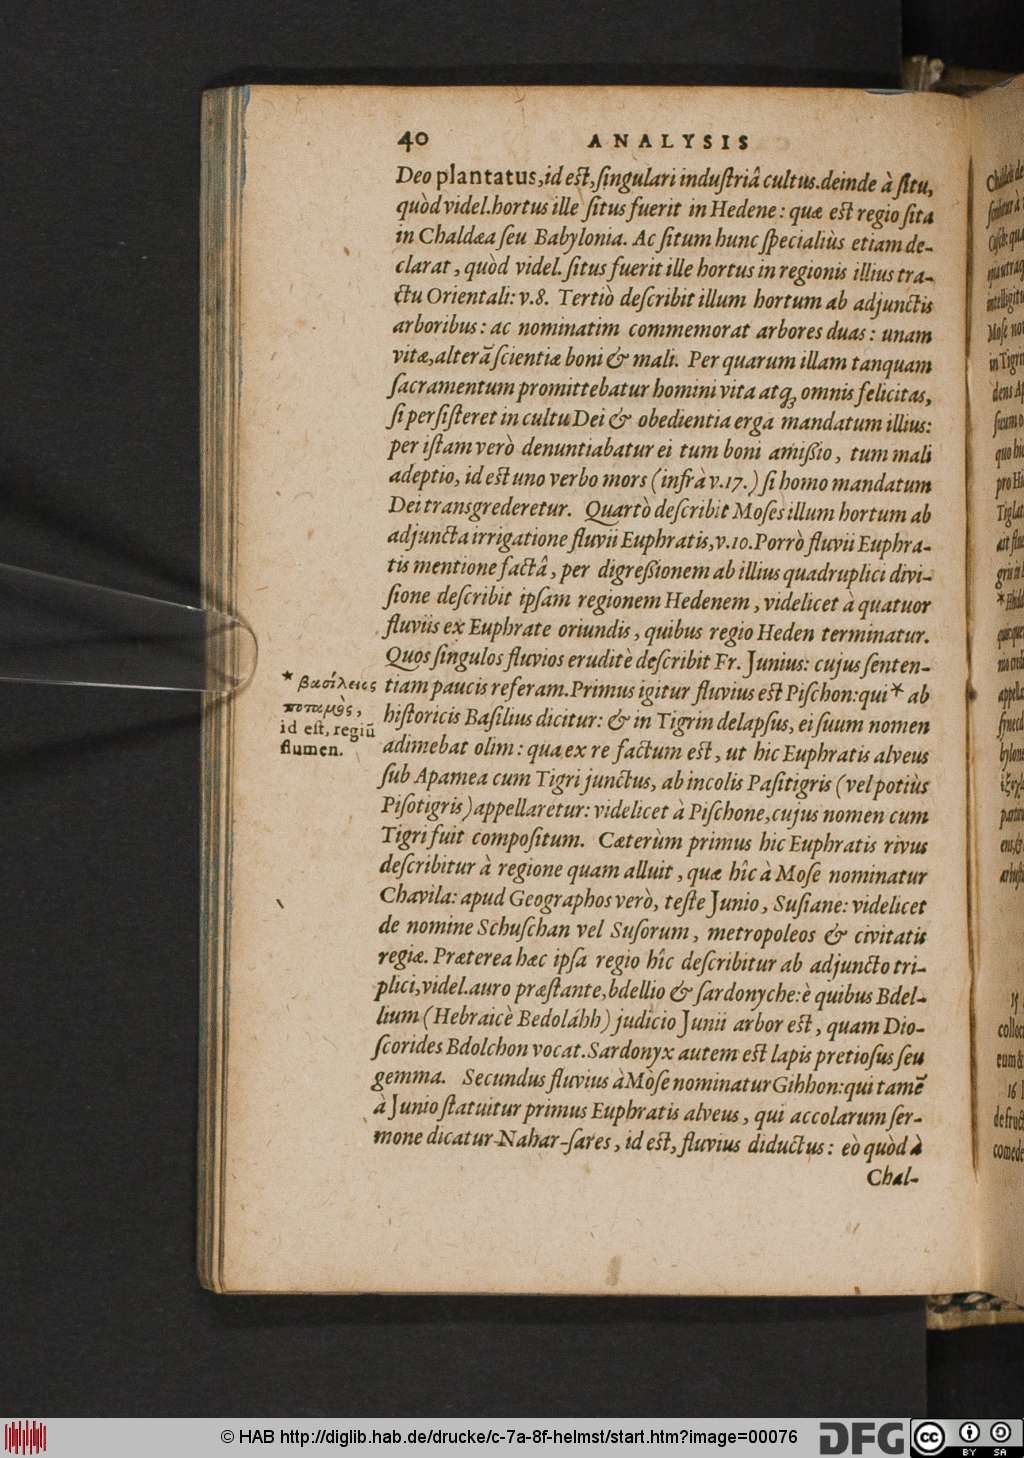 40 ANALYSIS
Deo plantatus, id est, singulari industriâ cultus. deinde à situ,
quòd videl. hortus ille situs fuerit in Hedene: quæ est regio sita
in Chaldæa seu Babylonia. Ac situm hunc specialiùs etiam de-
clarat, quòd videl. situs fuerit ille hortus in regionis illius tra-
ctu Orientali: v. 8. Tertiò describit illum hortum ab adjunctis
arboribus: ac nominatim commemorat arbores duas: unam
vitæ, alterã scientiæ boni & mali. Per quarum illam tanquam
sacramentum promittebatur homini vita atq; omnis felicitas,
si persisteret in cultu Dei & obedientia erga mandatum illius:
per istam verò denuntiabatur ei tum boni amißio, tum mali
adeptio, id est uno verbo mors (infrà v. 17.) si homo mandatum
Dei transgrederetur. Quartò describit Moses illum hortum ab
adjuncta irrigatione fluvii Euphratis, v. 10. Porrò fluvii Euphra-
tis mentione factâ, per digreßionem ab illius quadruplici divi-
sione describit ipsam regionem Hedenem, videlicet à quatuor
fluviis ex Euphrate oriundis, quibus regio Heden terminatur.
Quos singulos fluvios eruditè describit Fr. Junius: cujus senten-
tiam paucis referam. Primus igitur fluvius est Pischon: qui * ab
historicis Basilius dicitur: & in Tigrin delapsus, ei suum nomen
adimebat olim: qua ex re factum est, ut hic Euphratis alveus
sub Apamea cum Tigri junctus, ab incolis Pasitigris (vel potiùs
Pisotigris) appellaretur: videlicet à Pischone, cujus nomen cum
Tigri fuit compositum. Cæterùm primus hic Euphratis rivus
describitur à regione quam alluit, quæ hîc à Mose nominatur
Chavila: apud Geographos verò, teste Junio, Susiane: videlicet
de nomine Schuschan vel Susorum, metropoleos & civitatis
regiæ. Præterea hæc ipsa regio hîc describitur ab adjuncto tri-
plici, videl. auro præstante, bdellio & sardonyche: è quibus Bdel-
lium (Hebraicè Bedolahh) judicio Junii arbor est, quam Dio-
scorides Bdolchon vocat. Sardonyx autem est lapis pretiosus seu
gemma. Secundus fluvius à Mose nominatur Gihhon: qui tamẽ
à Junio statuitur primus Euphratis alveus, qui accolarum ser-
mone dicatur Nahar-sares, id est, fluvius diductus: eò quòd à
Chal-
* βασίλειος
ποταμὸς,
id est, regiũ
flumen.
© HAB http://diglib.hab.de/drucke/c-7a-8f-helmst/start.htm?image=00076
DFG
cc BY SA